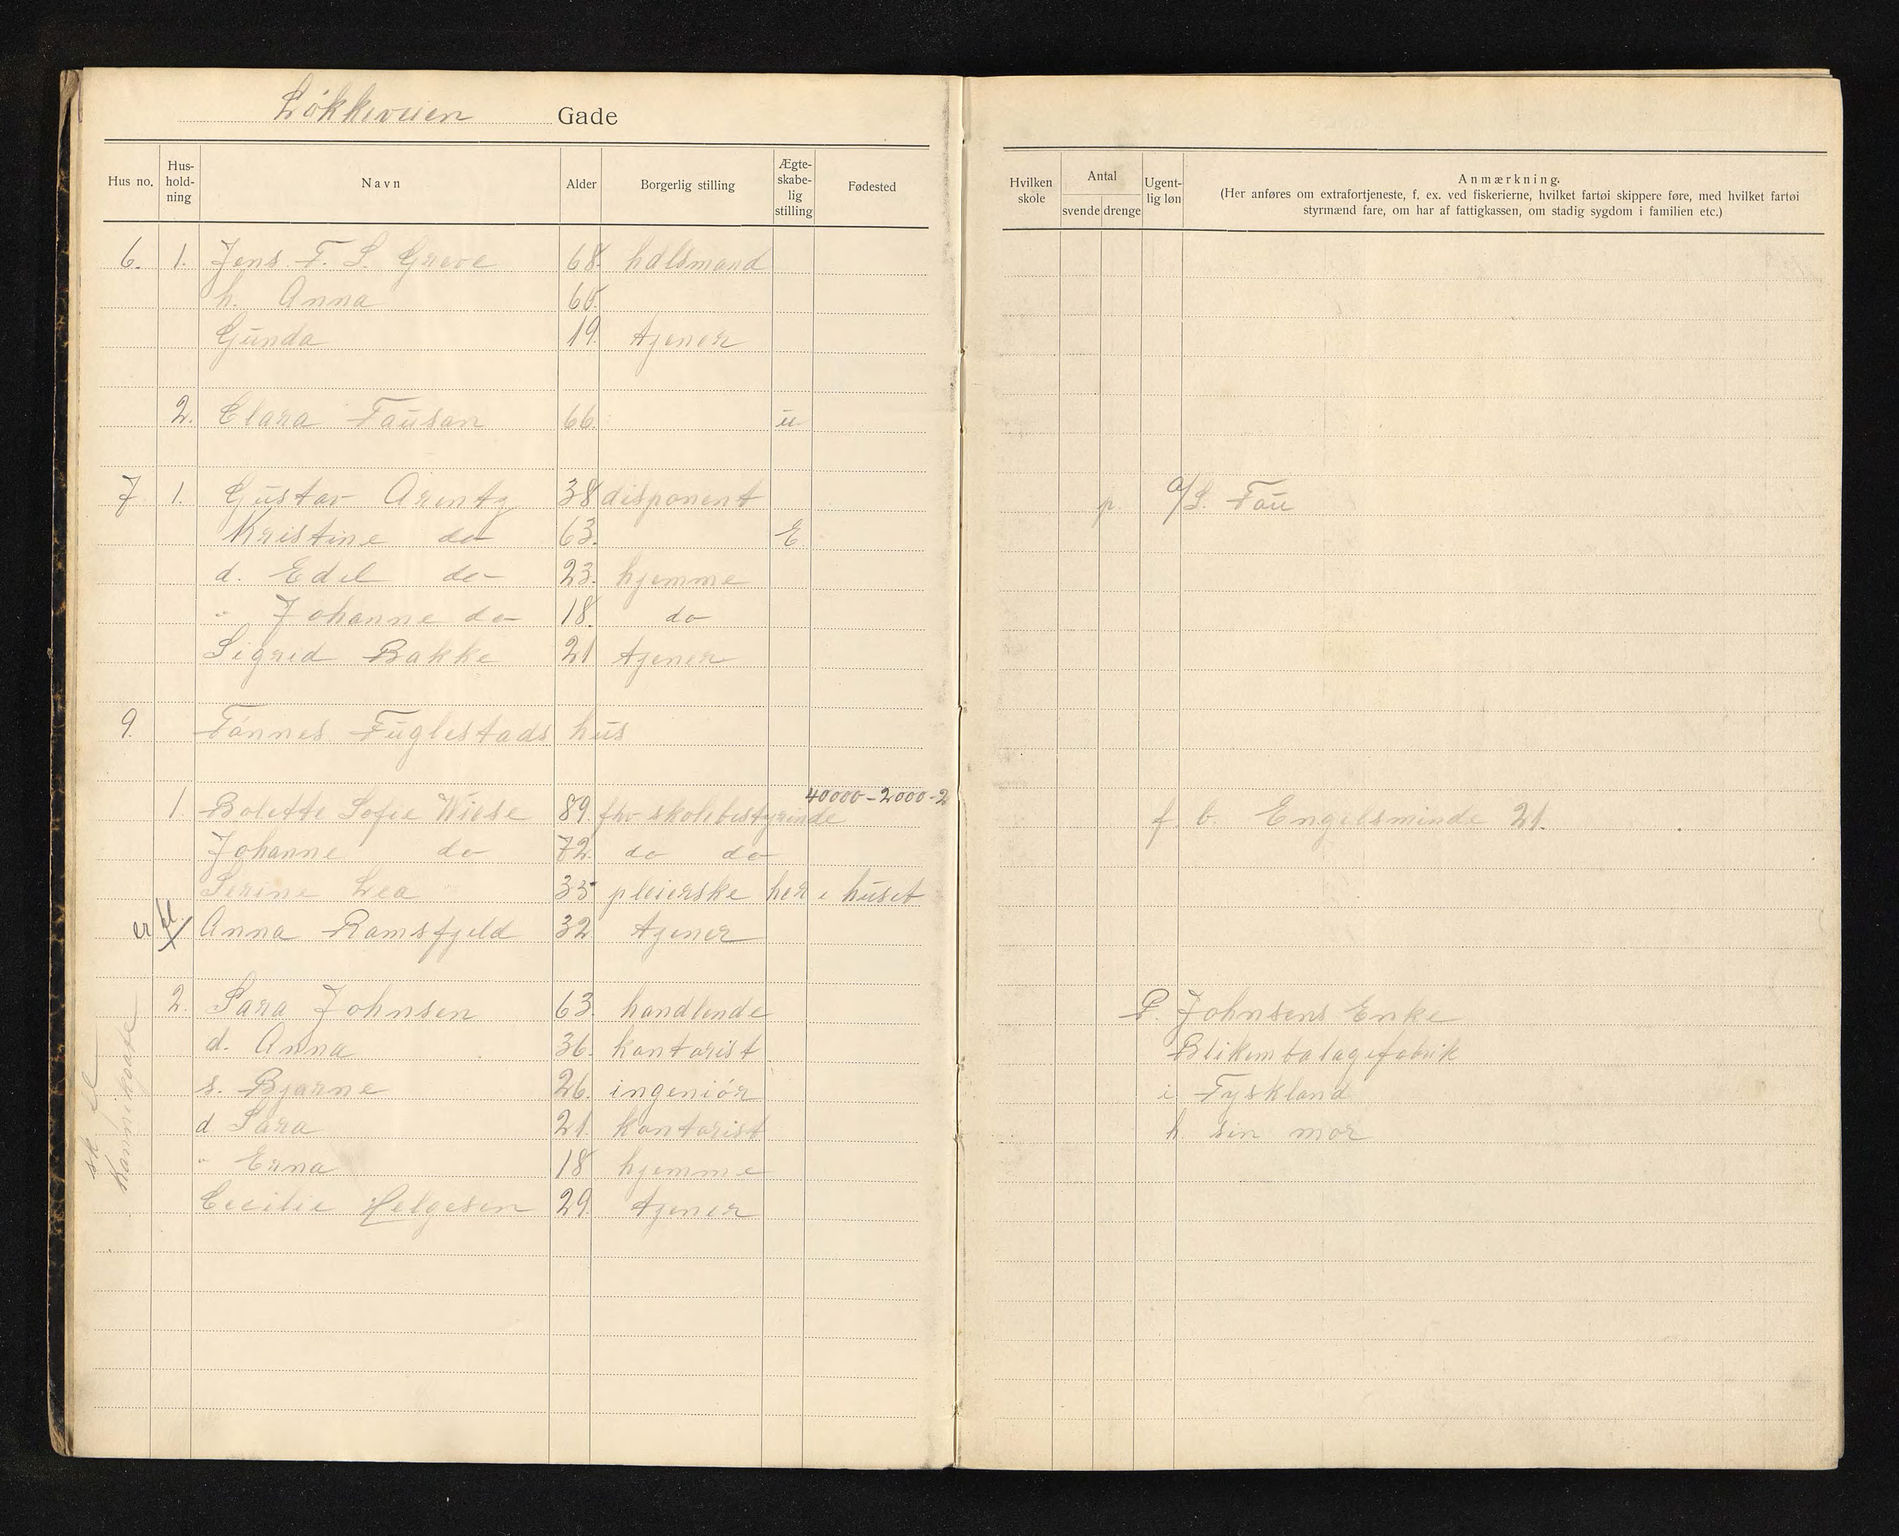 Løkkeveien Gade
Hus no. Hus-hold-ning Navn Alder Borgerlig stilling Ægte-skabe-lig stilling Fødested
Hvilken skole Antal svende drenge Ugent-lig løn Anmærkning.
(Her anføres om extrafortjeneste, f. ex. ved fiskerierne, hvilket fartøi skippere føre, med hvilket fartøi
styrmænd fare, om har af fattigkassen, om stadig sygdom i familien etc.)
6. 1. Jens F. S. Greve 68. halsmand
h. Anna 65.
Gunda 19. tjener
2. Clara Fausan 66. u
7 1. Gustav Arentz 38 disponent p. a/S. Fau
Kristine do 63. E
d. Edel do 23. hjemme
" Johanne do 18. do
Sigrid Bakke 21 tjener
9. Tønnes Fuglestads hus
40000-2000-2
1 Bolette Sofie Wiese 89. fhv skolebestyrinde f. b. Engelsminde 21.
Johanne do 72. do do
Serine Lea 35 pleierske her i huset
er fl. Anna Ramsfjeld 32 tjener
2. Sara Johnsen 63. handlende P. Johnsens Enke
d. Anna 36. kontorist Blikembalagefabrik
s. Bjarne 26. ingeniør i Tyskland
d Sara 21. kontorist h sin mor
" Erna 18 hjemme
Cecilie Helgesen 29. tjener
sk fl
Kannikgate